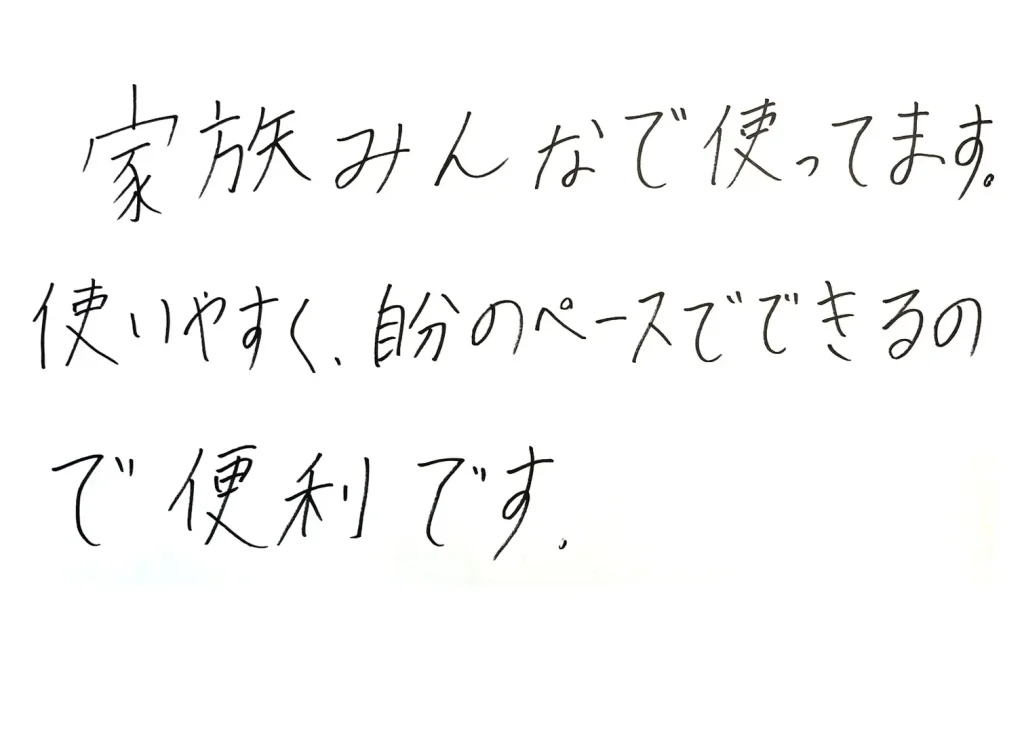 家族みんなで使ってます。
使いやすく、自分のペースでできるの
で便利です.